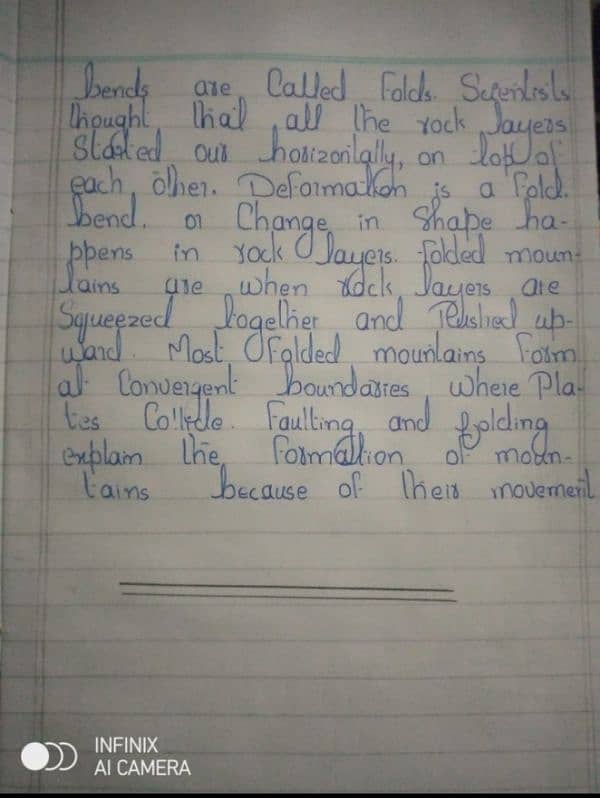 bends are Called Folds. Scientists
thought that all the rock layers
Started our horizontally, on top of
each other. Deformation is a fold.
bend, or Change in Shape ha-
ppens in rock layers. folded moun-
tains are when rock layers are
Squeezed together and Pushed up-
ward. Most folded mountains Form
at Convergent boundaries where Pla-
tes Collide. Faulting and folding
explain the formation of moun-
tains because of their movement
INFINIX
AI CAMERA